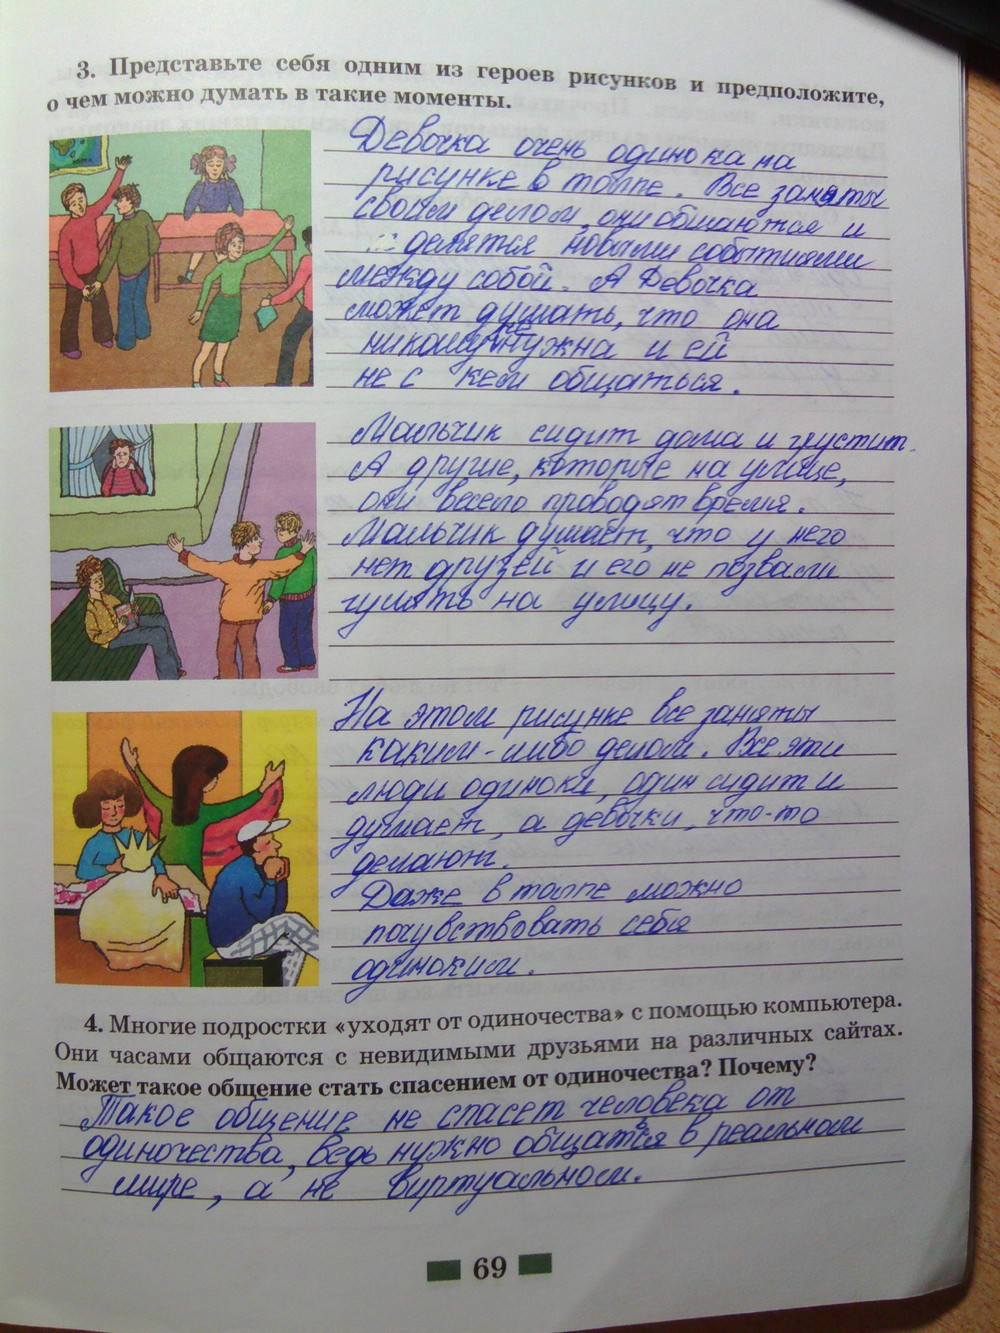 3. Представьте себя одним из героев рисунков и предположите,
о чем можно думать в такие моменты.
Девочка очень одинока на
рисунке в толпе. Все заняты
своим делом, они общаются и
делятся новыми событиями
между собой. А Девочка
может думать, что она
никому не нужна и ей
не с кем общаться.
Мальчик сидит дома и грустит.
А другие, которые на улице,
они весело проводят время.
Мальчик думает, что у него
нет друзей и его не позвали
гулять на улицу.
На этом рисунке все заняты
каким-либо делом. Все эти
люди одиноки, один сидит и
думает, а девочки, что-то
делают.
Даже в толпе можно
почувствовать себя
одиноким.
4. Многие подростки «уходят от одиночества» с помощью компьютера.
Они часами общаются с невидимыми друзьями на различных сайтах.
Может такое общение стать спасением от одиночества? Почему?
Такое общение не спасет человека от
одиночества, ведь нужно общатся в реальном
мире, а не виртуальном.
69